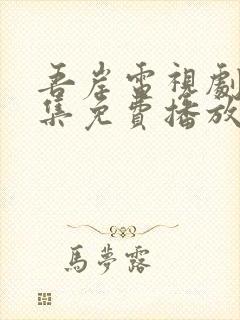 吾岸電視劇
集免費播放
馬夢露